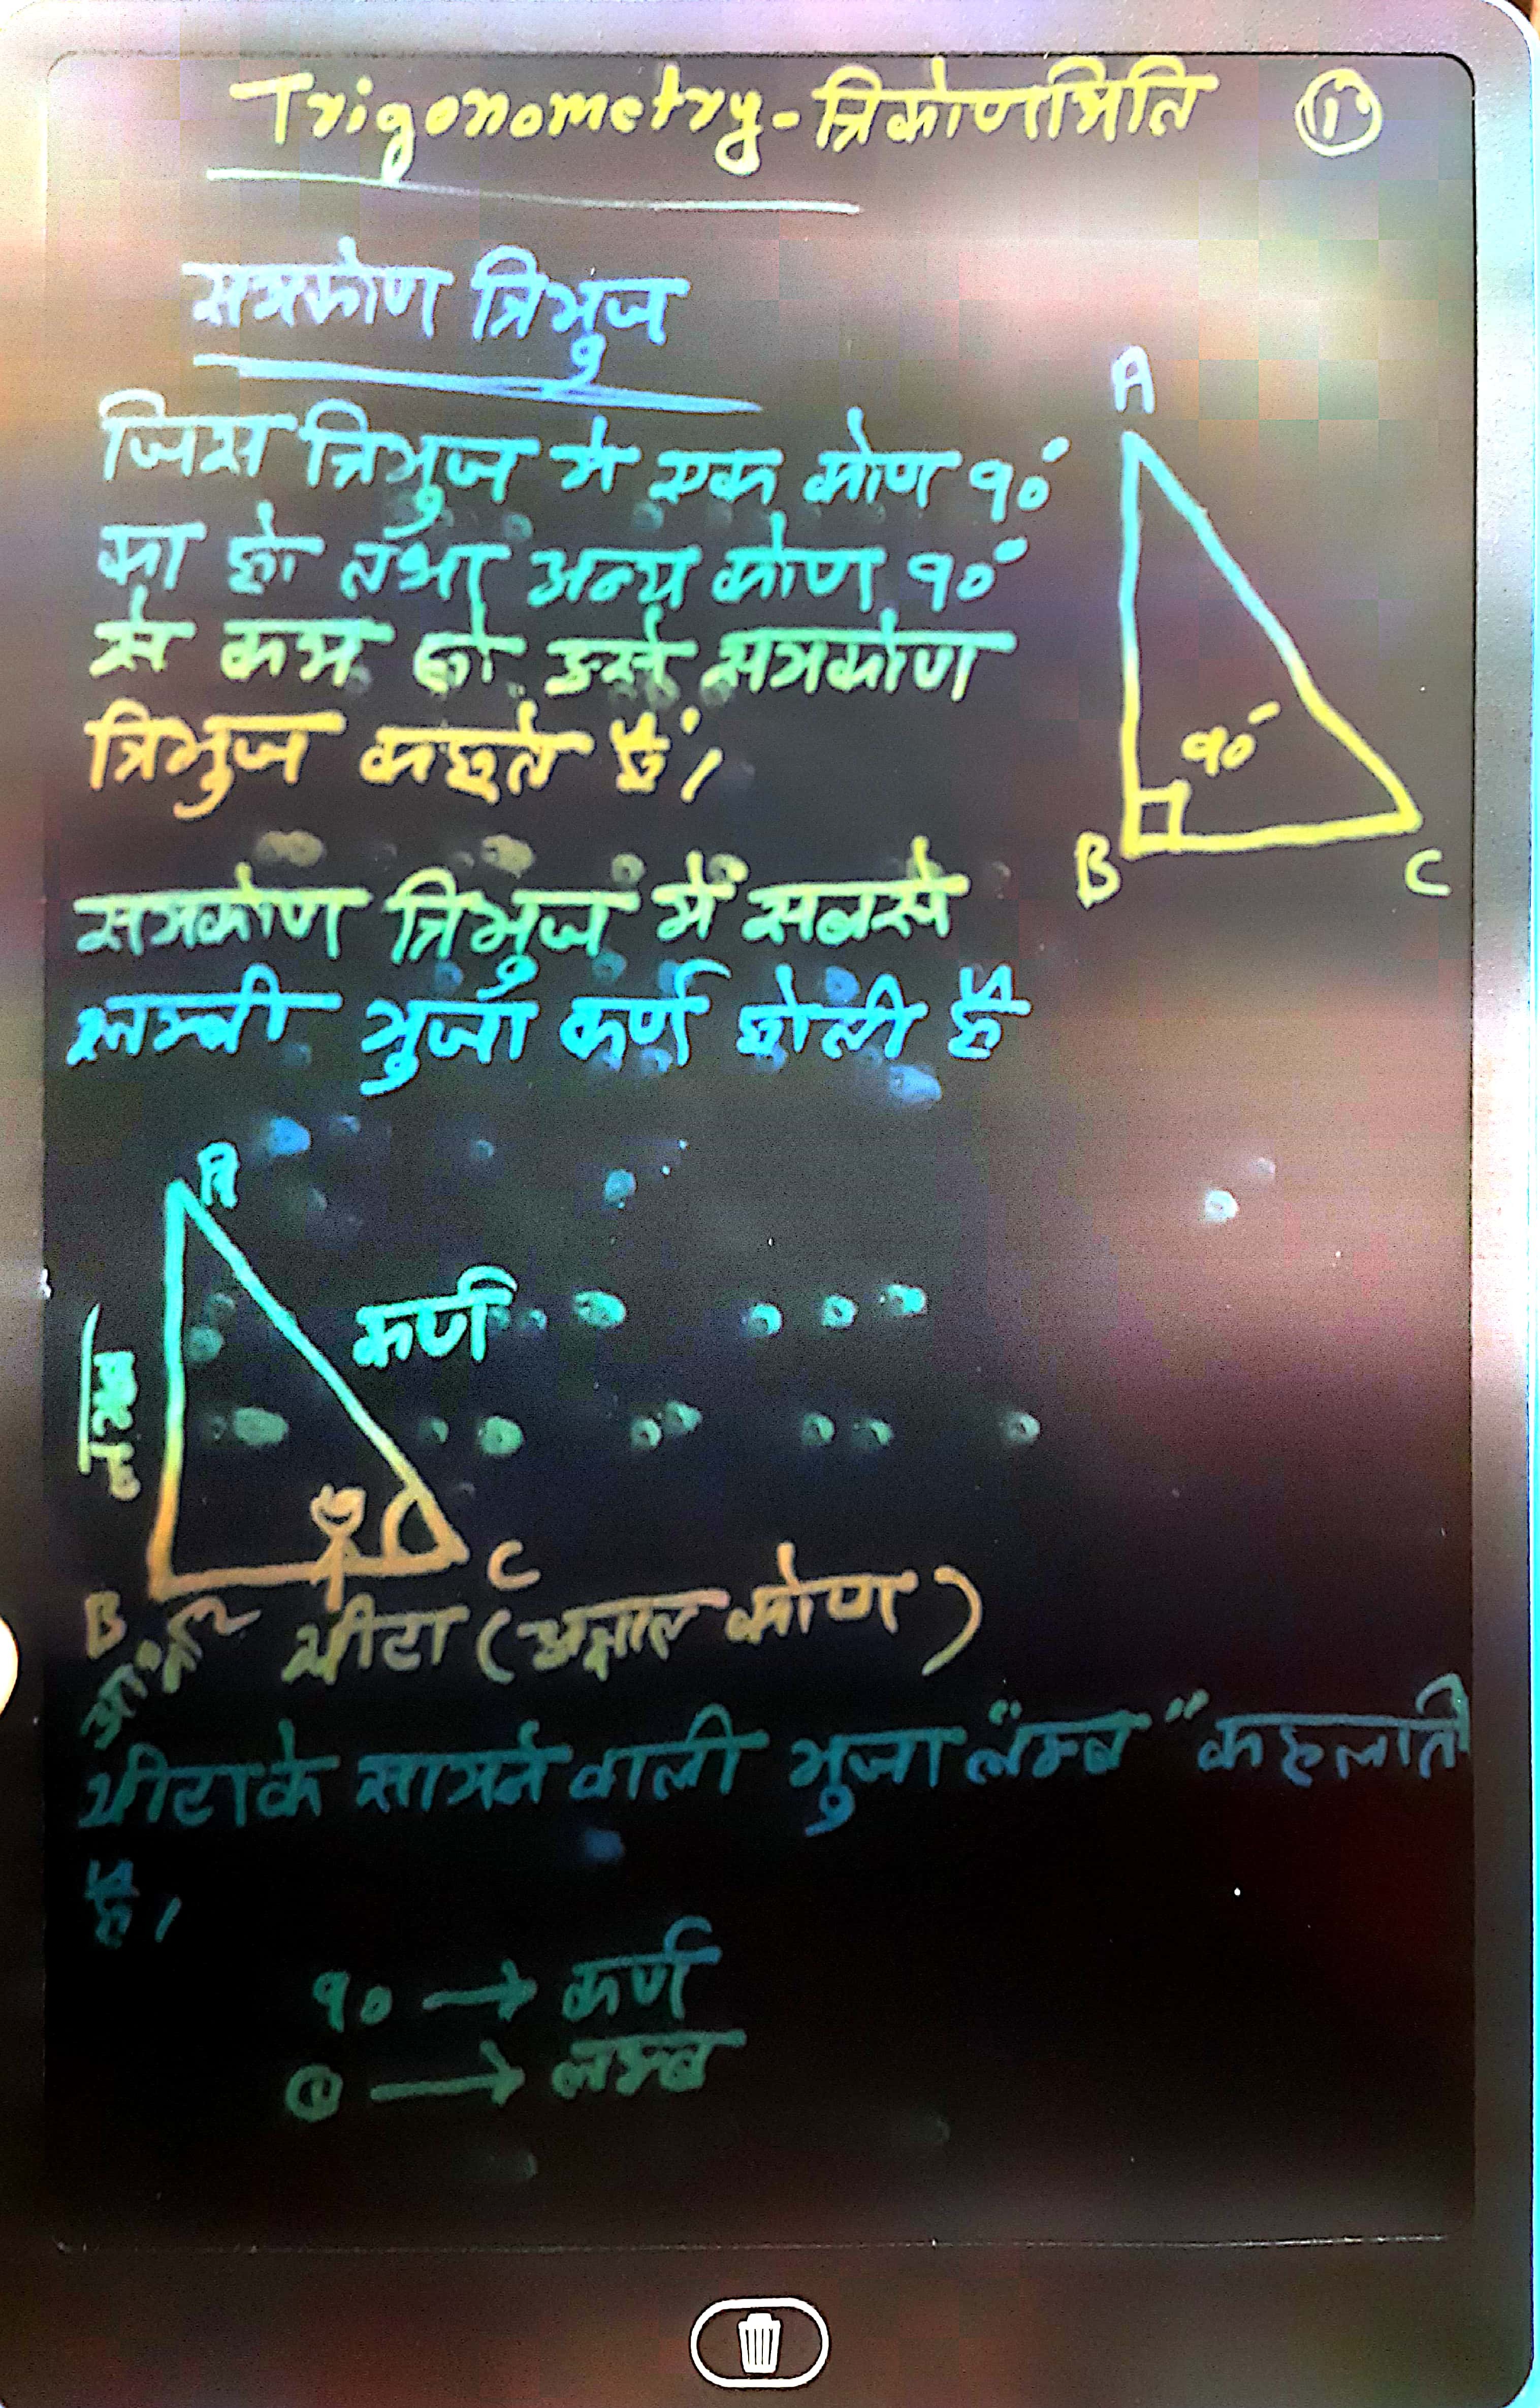 Trigonometry - त्रिकोणमिति ①
समकोण त्रिभुज
जिस त्रिभुज मे एक कोण 90°
का हो तथा अन्य कोण 90°
से कम हो उसे समकोण
त्रिभुज कहते हैं।
A
90°
B
C
समकोण त्रिभुज में सबसे
लम्बी भुजा कर्ण होती है
A
कर्ण
लम्ब
B
C
थीटा (अज्ञात कोण)
थीटा के सामने वाली भुजा "लम्ब" कहलाती
है।
90 → कर्ण
θ → लम्ब